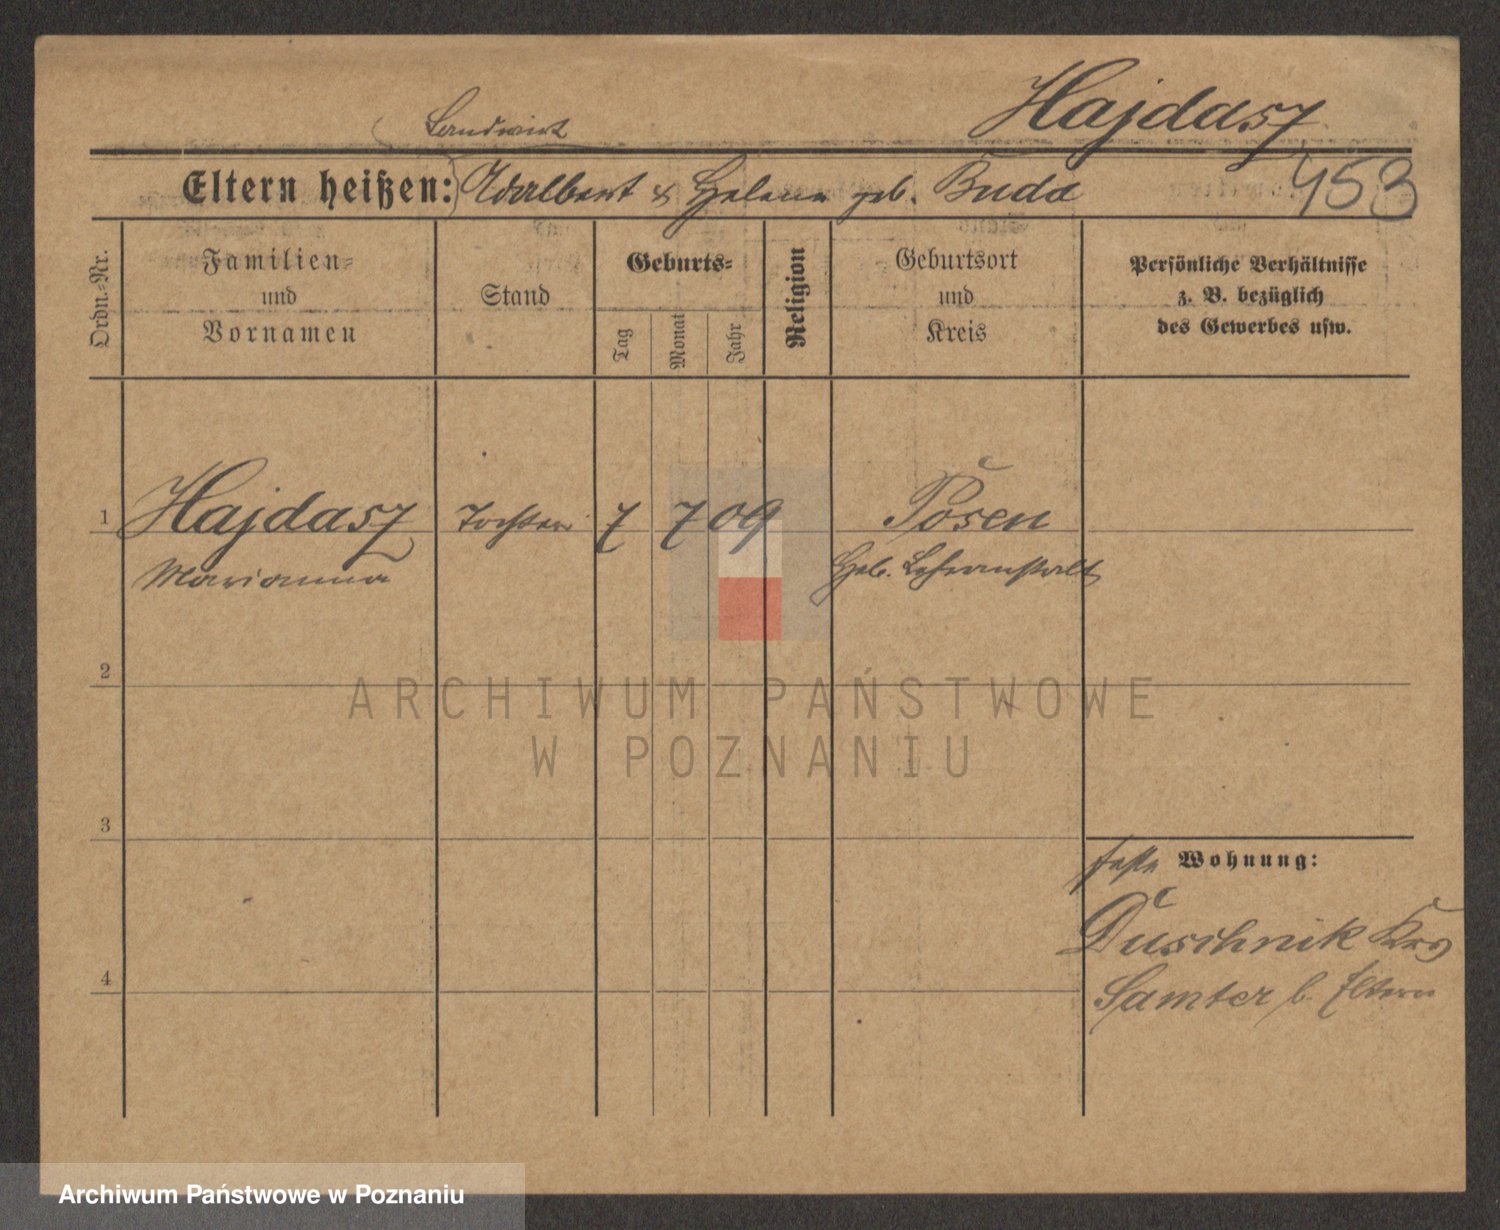 Landwirt
Hajdasz
Eltern heißen: Adalbert & Helena geb. Buda
453
Ordn.-Nr.
Familien-
und
Vornamen
Stand
Geburts-
Tag
Monat
Jahr
Religion
Geburtsort
und
Kreis
Persönliche Verhältnisse
z. B. bezüglich
des Gewerbes usw.
1 Hajdasz Tochter 7 7 09 Posen
Marianna Heb. Lehranstalt
2
ARCHIWUM PAŃSTWOWE
W POZNANIU
3
feste Wohnung:
Duschnik Krs
4
Samter b. Eltern
Archiwum Państwowe w Poznaniu